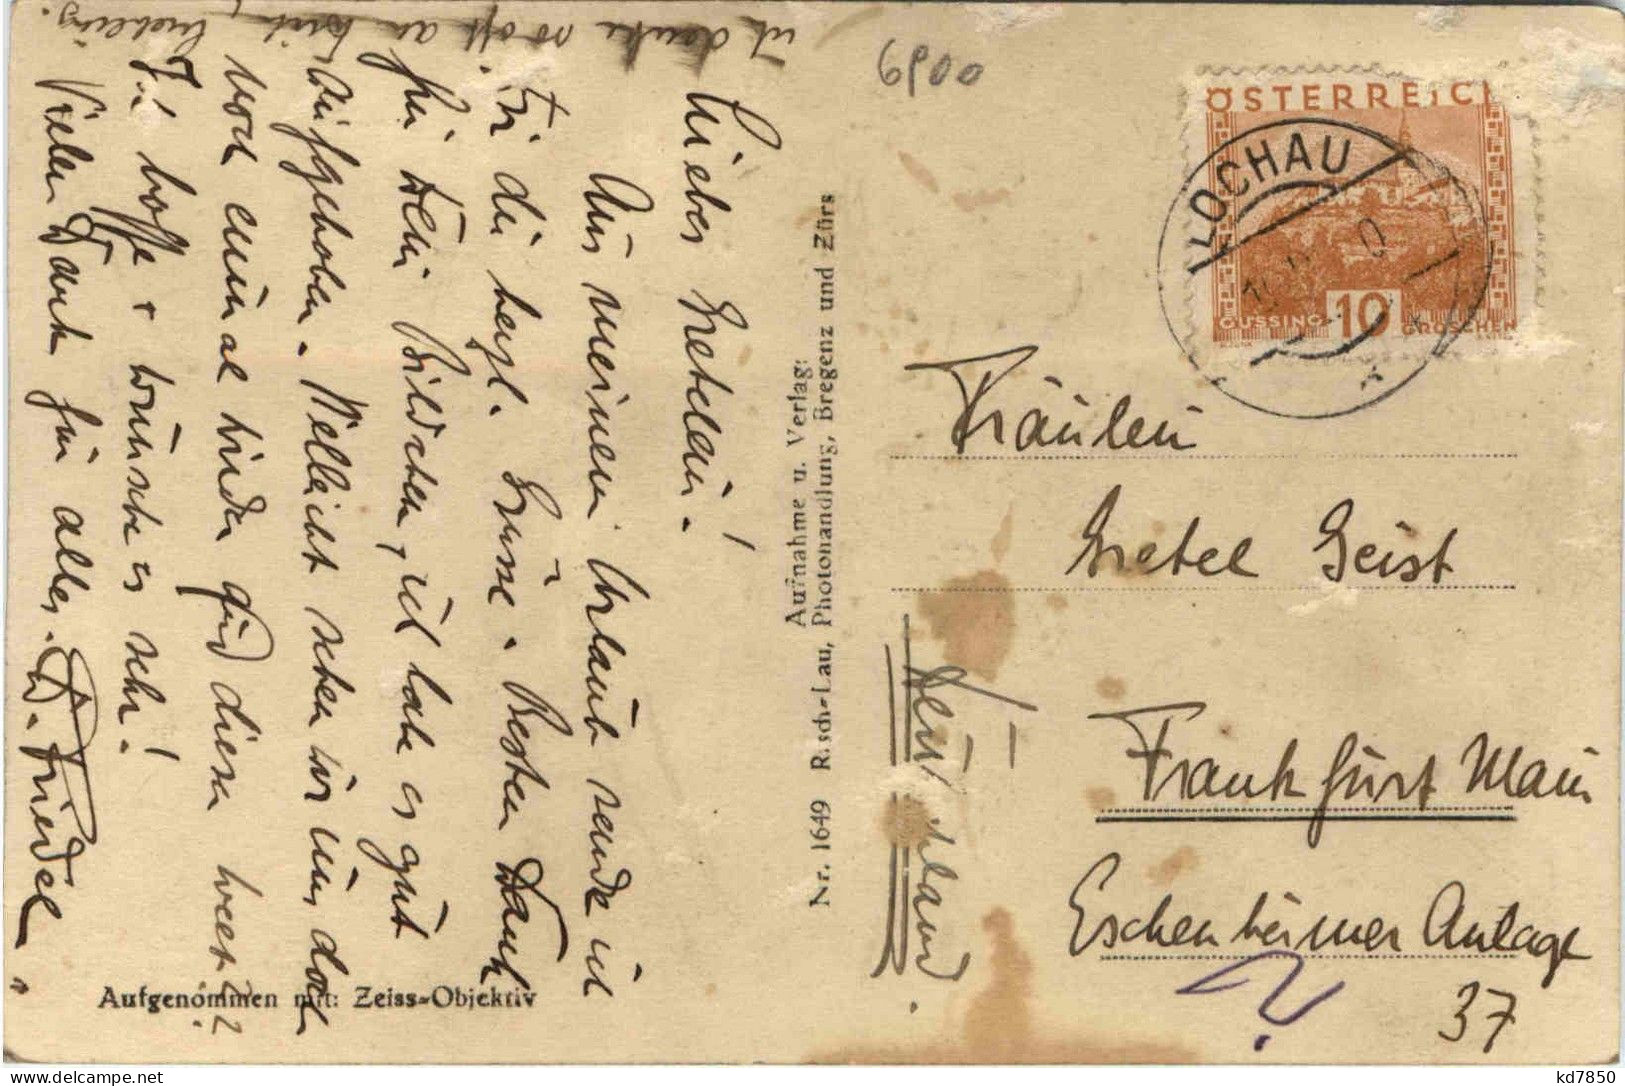 ich denke so oft an Dich, Liebling.
Liebes Gretelein!
Aus meinem Urlaub sende ich
Dir die herzl. Grüsse. Besten Dank
für Dein Bildchen, ich habe es gut
aufgehoben. Vielleicht sehen wir uns doch
noch einmal wieder auf dieser Welt??
Ich hoffe + wünsche es sehr!
Vielen Dank für alles. Friedel.
Aufgenommen mit: Zeiss-Objektiv
Aufnahme u. Verlag:
Nr. 1649 Risch-Lau, Photohandlung, Bregenz und Zürs
6900
ÖSTERREIC
LOCHAU
GÜSSING 10 GROSCHEN
Fräulein
Gretel Geist
Frankfurt Main
Eschenheimer Anlage
37
?
Deutschland.
kd7850